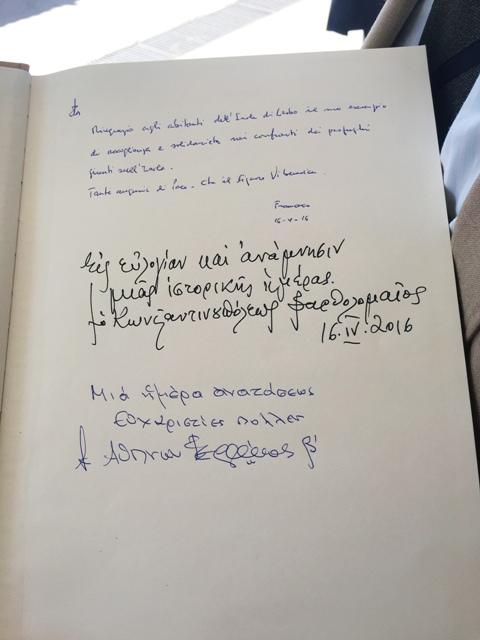 Ringrazio agli abitanti dell'Isola di Lesbo il suo esempio
di accoglienza e solidarietà nei confronti dei profughi
giunti sull'Isola.
Tanti auguri di Pace. Che il Signore Vi benedica.
Francesco
16-4-16
Εἰς εὐλογίαν καὶ ἀνάμνησιν
μιᾶς ἱστορικῆς ἡμέρας.
ὁ Κωνσταντινουπόλεως Βαρθολομαῖος
16.IV.2016
Μιά ἡμέρα αναστάσεως
Εὐχαριστίες πολλές
Αθηνών Β'